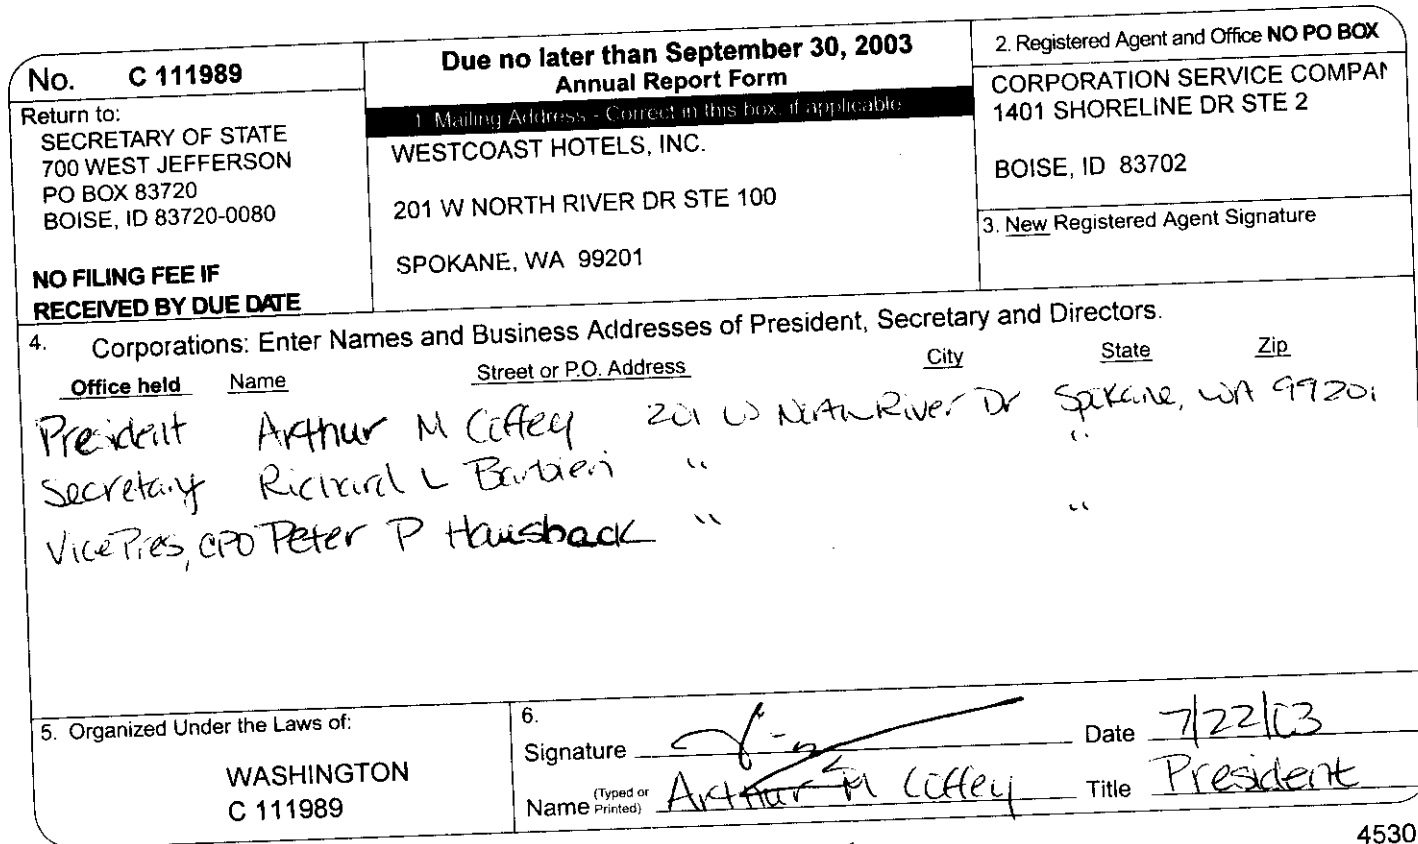 No. C 111989
Return to:
SECRETARY OF STATE
700 WEST JEFFERSON
PO BOX 83720
BOISE, ID 83720-0080
NO FILING FEE IF
RECEIVED BY DUE DATE
Due no later than September 30, 2003
Annual Report Form
1. Mailing Address - Correct in this box, if applicable
WESTCOAST HOTELS, INC.
201 W NORTH RIVER DR STE 100
SPOKANE, WA 99201
2. Registered Agent and Office NO PO BOX
CORPORATION SERVICE COMPAN
1401 SHORELINE DR STE 2
BOISE, ID 83702
3. New Registered Agent Signature
4. Corporations: Enter Names and Business Addresses of President, Secretary and Directors.
Office held Name Street or P.O. Address City State Zip
President Arthur M Coffey 201 W North River Dr Spokane, WA 99201
Secretary Richard L Barbieri " "
Vice Pres, CFO Peter P Hausback " "
5. Organized Under the Laws of:
WASHINGTON
C 111989
6.
Signature Date 7/22/03
Name (Typed or Printed) Arthur M Coffey Title President
4530